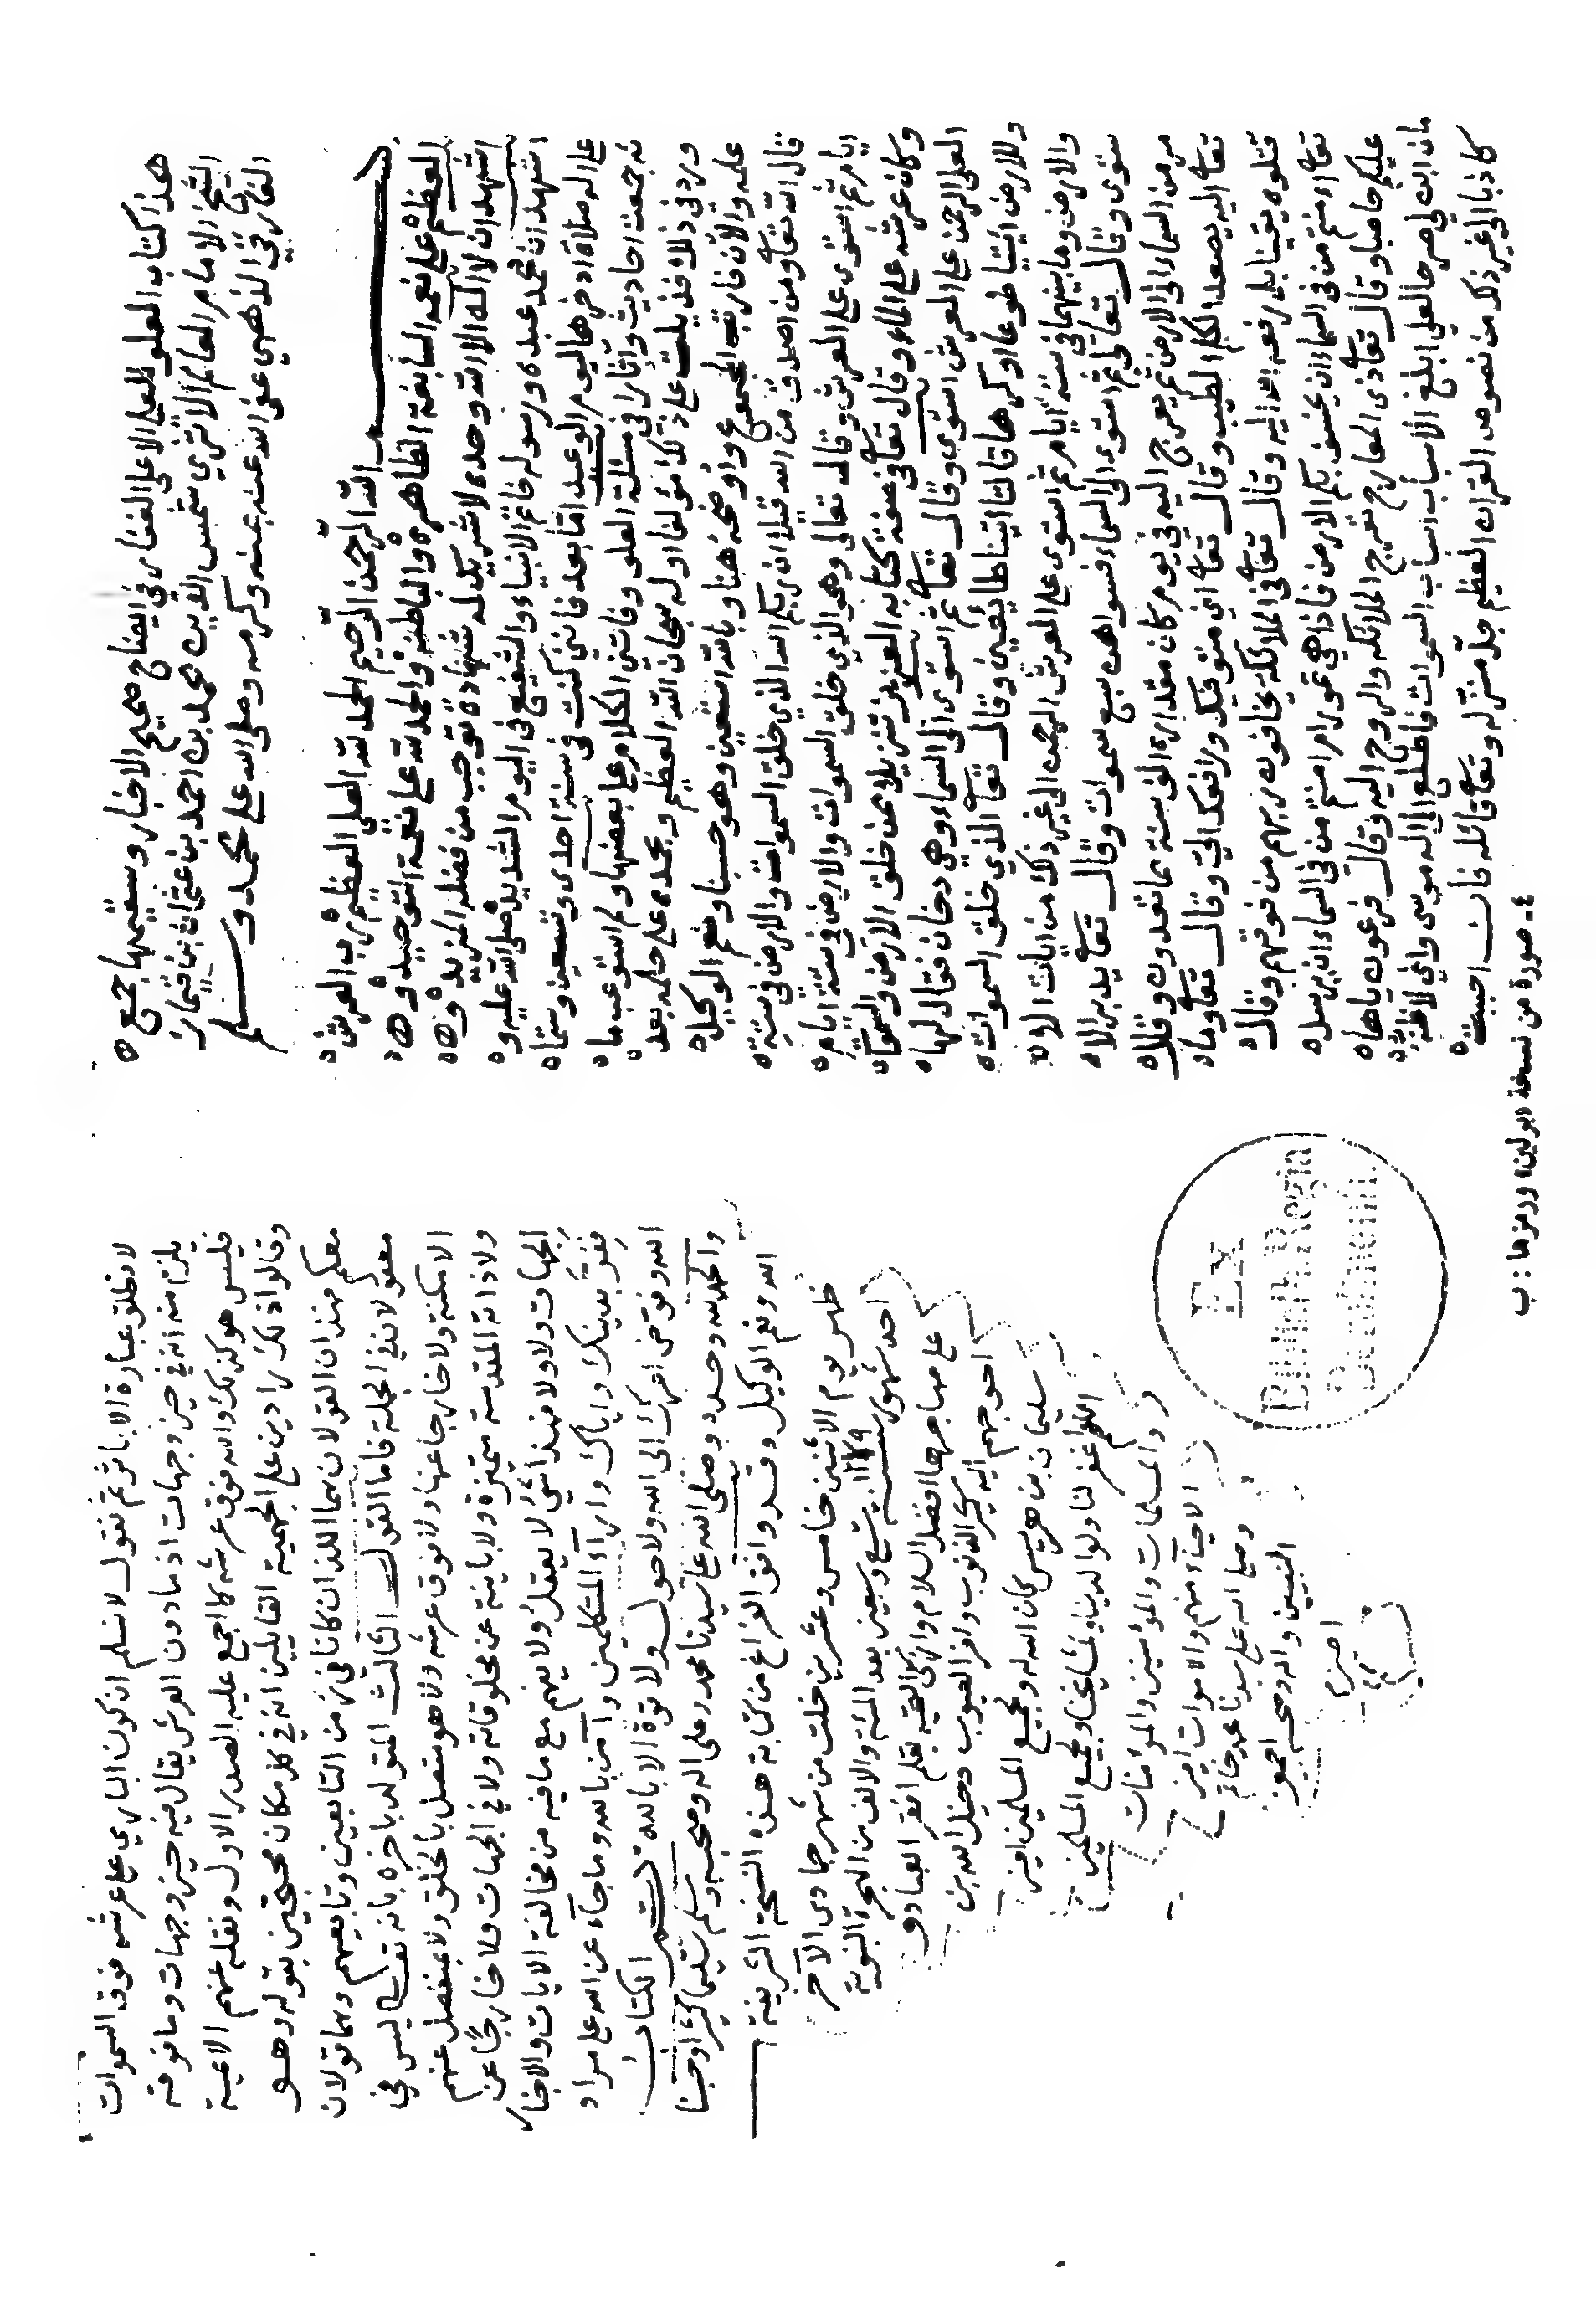 هذا كتاب العلو للعلي الاعلى الغفار في ايضاح صحيح الاخبار وسقيمها جمع
الشيخ الامام العالم الاثري شمس الدين محمد بن احمد بن عثمان بن قيماز
الفارقي الذهبي عفى الله عنه بمنه وكرمه وصلى الله على محمد وسلم
بسم الله الرحمن الرحيم الحمد لله العلي العظيم رب العرش
العظيم على نعمه السابغة الظاهرة والباطنة والحمد لله على نعمة التوحيد و
اشهد ان لا اله الا الله وحده لا شريك له شهادة توجب من فضله المزيد و
اشهد ان محمدا عبده ورسوله خاتم الانبياء والشفيع في اليوم الشديد صلى الله عليه و
على اله صلاة ادخرها ليوم الوعيد اما بعد فانني كنت في سنة احدى وتسعين وستما
ئه جمعت احاديث واثارا في مسئلة العلو وفاتني الكلام على بعضها ولم استوعب ما
ورد في ذلك فذيلت على ذلك مؤلفا اوله سبحان الله العظيم وبحمده على حلمه بعد
علمه والان فارتب المجموع واوضحه هنا وبالله استعين وهو حسبنا ونعم الوكيل
قال الله تعا ومن اصدق من الله قيلا ان ربكم الله الذي خلق السموات والارض في ستة
ايام ثم استوى على العرش وقال تعالى وهو الذي خلق السموات والارض في ستة ايام
وكان عرشه على الماء وقال تعا في صفة كتابه العزيز تنزيلا ممن خلق الارض والسموات
العلى الرحمن على العرش استوى وقال تعا ثم استوى الى السماء وهي دخان فقال لها
وللارض ائتيا طوعا او كرها قالتا اتينا طائعين وقال تعا الذي خلق السموات
والارض وما بينهما في ستة ايام ثم استوى على العرش الرحمن الى غير ذلك من ايات الا
ستوى وقال تعالى ثم استوى الى السماء فسواهن سبع سموات وقال تعا يدبر الا
مر من السماء الى الارض ثم يعرج اليه في يوم كان مقداره الف سنة مما تعدون وقال
تعا اليه يصعد الكلم الطيب وقال تعا اني متوفيك ورافعك الي وقال تعا وما
قتلوه يقينا بل رفعه الله اليه وقال تعا في الملائكة يخافون ربهم من فوقهم وقال
تعا ءامنتم من في السماء ان يخسف بكم الارض فاذا هي تمور ام امنتم من في السماء ان يرسل
عليكم حاصبا وقال تعا ذي المعارج تعرج الملائكه والروح اليه وقال فرعون ياها
مان ابن لي صرحا لعلي ابلغ الاسباب اسباب السموات فاطلع الى اله موسى واني لاظنه
كاذبا الى غير ذلك من نصوص القران العظيم جل منزله وتعا قائله فان احببت
٤- صورة من نسخة «برلين» ورمزها: ب
لا نطلق عبارة الا باثر ثم نقول لا نسلم ان كون الباري على عرشه فوق السموات
يلزم منه انه في حيز وجهات اذ ما دون العرش يقال فيه حيز وجهات وما فوقه
فليس هو كذلك والله فوق عرشه كما اجمع عليه الصدر الاول ونقله عنهم الائمة
وقالوا ذلك رادين على الجهمية القايلين انه في كل مكان محتجين بقوله وهو
معكم فهذان القولان هما اللذان كانا في زمن التابعين وتابعيهم وهما قولان
معقولان في الجملة فاما القول الثالث المتولد باخره بانه تعالى ليس في
الامكنة ولا خارجا عنها ولا فوق عرشه ولا هو متصل بالخلق ولا بمنفصل عنهم
ولا ذاته المقدسه متميزة ولا باينة عن مخلوقاته ولا في الجهات ولا خارجا عن
الجهات ولا ولا فهذا شئ لا يعقل ولا يفهم مع ما فيه من مخالفة الايات والاخبار
ففر بدينك واياك واراء المتكلمين وامن بالله وما جاء عن الله على مراد
الله وفوض امرك الى الله ولا حول ولا قوة الا بالله تم الكتاب
والحمد لله وحده وصلى الله على سيدنا محمد وعلى اله وصحبه وسلم تسليما كثيرا وحسبنا
الله ونعم الوكيل وقد وافق الفراغ من كتابة هذه النسخة الشريفة
ظهر يوم الاثنين خامس وعشرين خلت من شهر جمادى الاخر
احد شهور سنة ١١٧٩ تسع وسبعين بعد المئة والالف من الهجرة النبوية
على مهاجرها افضل السلام وازكى التحية بقلم افقر العباد و
احوجهم اليه كثير الذنوب وافر العيوب دخيل الله بن
سليمان بن حريس كان الله له ولجميع المسلمين امين
اللهم اغفر لنا ولوالدينا ولمشايخنا ولجميع المسلمين
والمسلمات والمؤمنين والمؤمنات
الاحياء منهم والاموات امين
وصلى الله على سيدنا محمد خاتم
النبيين واله وصحبه اجمعين
امين
Ex
Biblioth. Regia
Berolinensi.